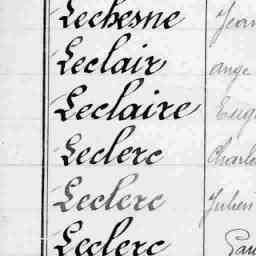 Lechesne Jean
Leclair ange
Leclaire Eug
Leclerc Charle
Leclerc Julien
Leclerc